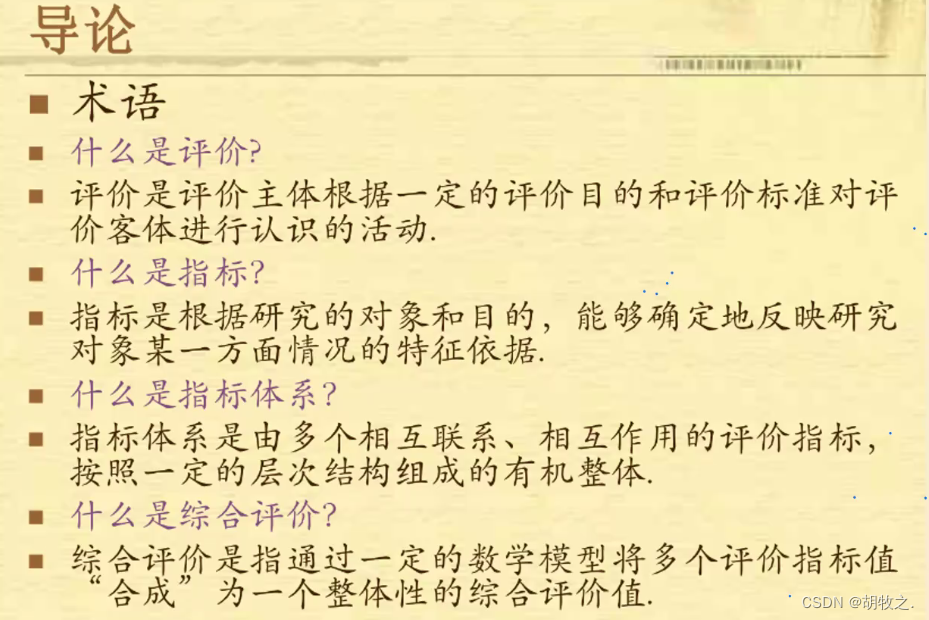 导论
术语
什么是评价?
评价是评价主体根据一定的评价目的和评价标准对评
价客体进行认识的活动.
什么是指标?
指标是根据研究的对象和目的，能够确定地反映研究
对象某一方面情况的特征依据.
什么是指标体系?
指标体系是由多个相互联系、相互作用的评价指标，
按照一定的层次结构组成的有机整体.
什么是综合评价?
综合评价是指通过一定的数学模型将多个评价指标值
“合成”为一个整体性的综合评价值.
CSDN @胡牧之.